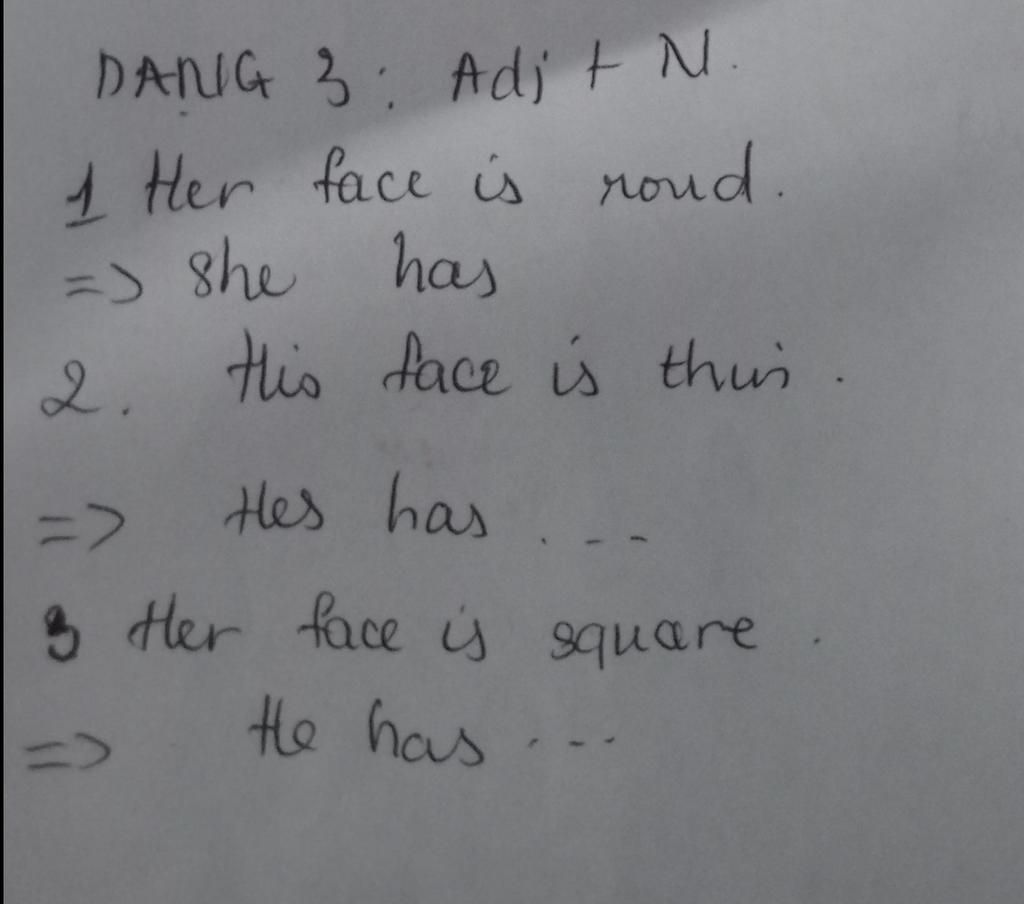 DẠNG 3: Adj + N.
1 Her face is roud.
=> she has
2. His face is thin.
=> Hes has . - -
3 Her face is square.
=> He has ...